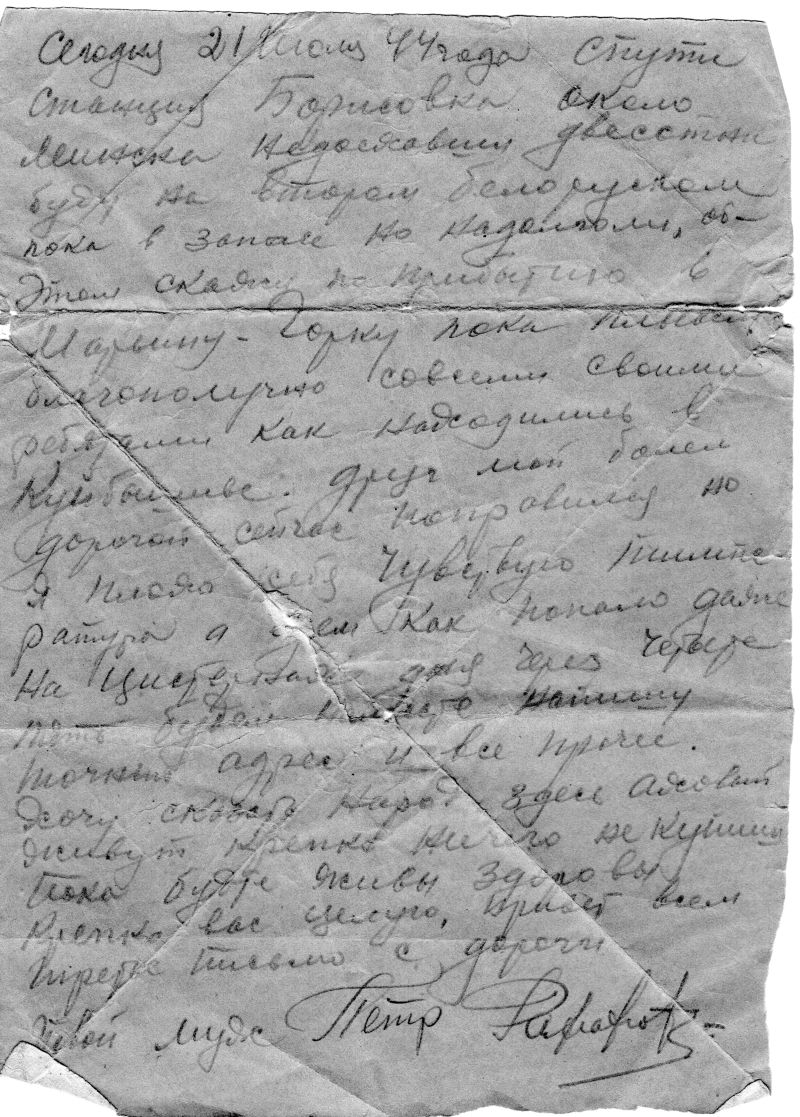 Сегодня 21 Июля 44 года с пути
станция Борисовка около
Минска недоежавши двесоткм
буду на втором белоруском
пока в запасе но надолголи, об-
этом скажу по прибытию в
Марьину-Горку пока
благополучно совсеми своими
ребятами как находились в
Куйбышиве. друг мой болел
дорогой сейчас поправился но
я плохо себя чувствую тимпе-
ратура а едем как попало даже
на цистернах дня через четыре
пять будем на месте напишу
точный адрес и все прочее.
Хочу сказать народ здесь
живут крепко ничего не купиш
Пока будте живы здоровы,
Крепко вас целую, привет всем
третье письмо с дороги
Твой муж Пётр